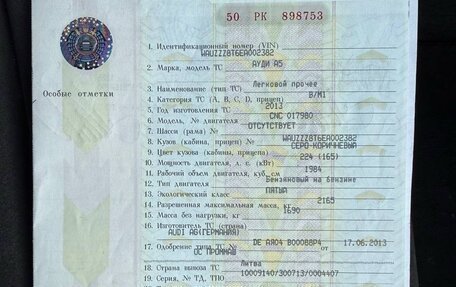 50 РК 898753
1. Идентификационный номер (VIN) WAUZZZ8T6EA002382
2. Марка, модель ТС АУДИ А5
Особые отметки
3. Наименование (тип ТС) Легковой прочее
4. Категория ТС (А, В, С, D, прицеп) B/M1
5. Год изготовления ТС 2013
6. Модель, № двигателя CNC 017980
7. Шасси (рама) № ОТСУТСТВУЕТ
8. Кузов (кабина, прицеп) № WAUZZZ8T6EA002382
9. Цвет кузова (кабины, прицепа) СЕРО-КОРИЧНЕВЫЙ
10. Мощность двигателя, л. с. (кВт) 224 (165)
11. Рабочий объем двигателя, куб. см 1984
12. Тип двигателя Бензиновый на бензине
13. Экологический класс ПЯТЫЙ
14. Разрешенная максимальная масса, кг 2165
15. Масса без нагрузки, кг 1690
16. Изготовитель ТС (страна)
AUDI AG(ГЕРМАНИЯ)
17. Одобрение типа ТС № DE.AЯ04.B00088P4 от 17.06.2013
ОС ПРОММАШ
18. Страна вывоза ТС Литва
19. Серия, № ТД, ТПО 10009140/300713/0004407